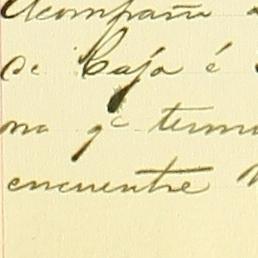 Acompaña
de Caja é
na qe term
encuentre